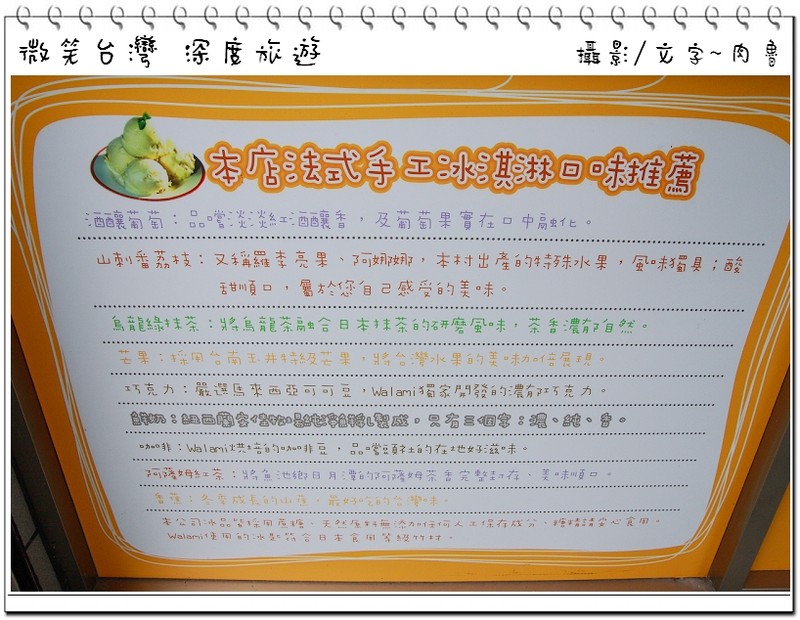 微笑台灣 深度旅遊
攝影/文字~肉魯
本店法式手工冰淇淋口味推薦
酒釀葡萄：品嚐淡淡紅酒釀香，及葡萄果實在口中融化。
山刺番荔枝：又稱羅李亮果、阿娜娜，本村出產的特殊水果，風味獨具；酸
甜順口，屬於您自己感受的美味。
烏龍綠抹茶：將烏龍茶融合日本抹茶的研磨風味，茶香濃郁自然。
芒果：採用台南玉井特級芒果，將台灣水果的美味加倍展現。
巧克力：嚴選馬來西亞可可豆，Walami獨家開發的濃郁巧克力。
鮮奶：紐西蘭 製成，只有三個字：濃、純、香。
咖啡：Walami烘培的咖啡豆，品嚐頭社的在地好滋味。
阿薩姆紅茶：將魚池鄉日月潭的阿薩姆茶香完整封存、美味順口。
香蕉：冬季成長的山蕉，最好吃的台灣味。
本公司冰品皆採用蔗糖、天然原料無添加任何人工保存成分，糖請安心食用。
Walami使用的冰匙符合日本食用等級竹材。